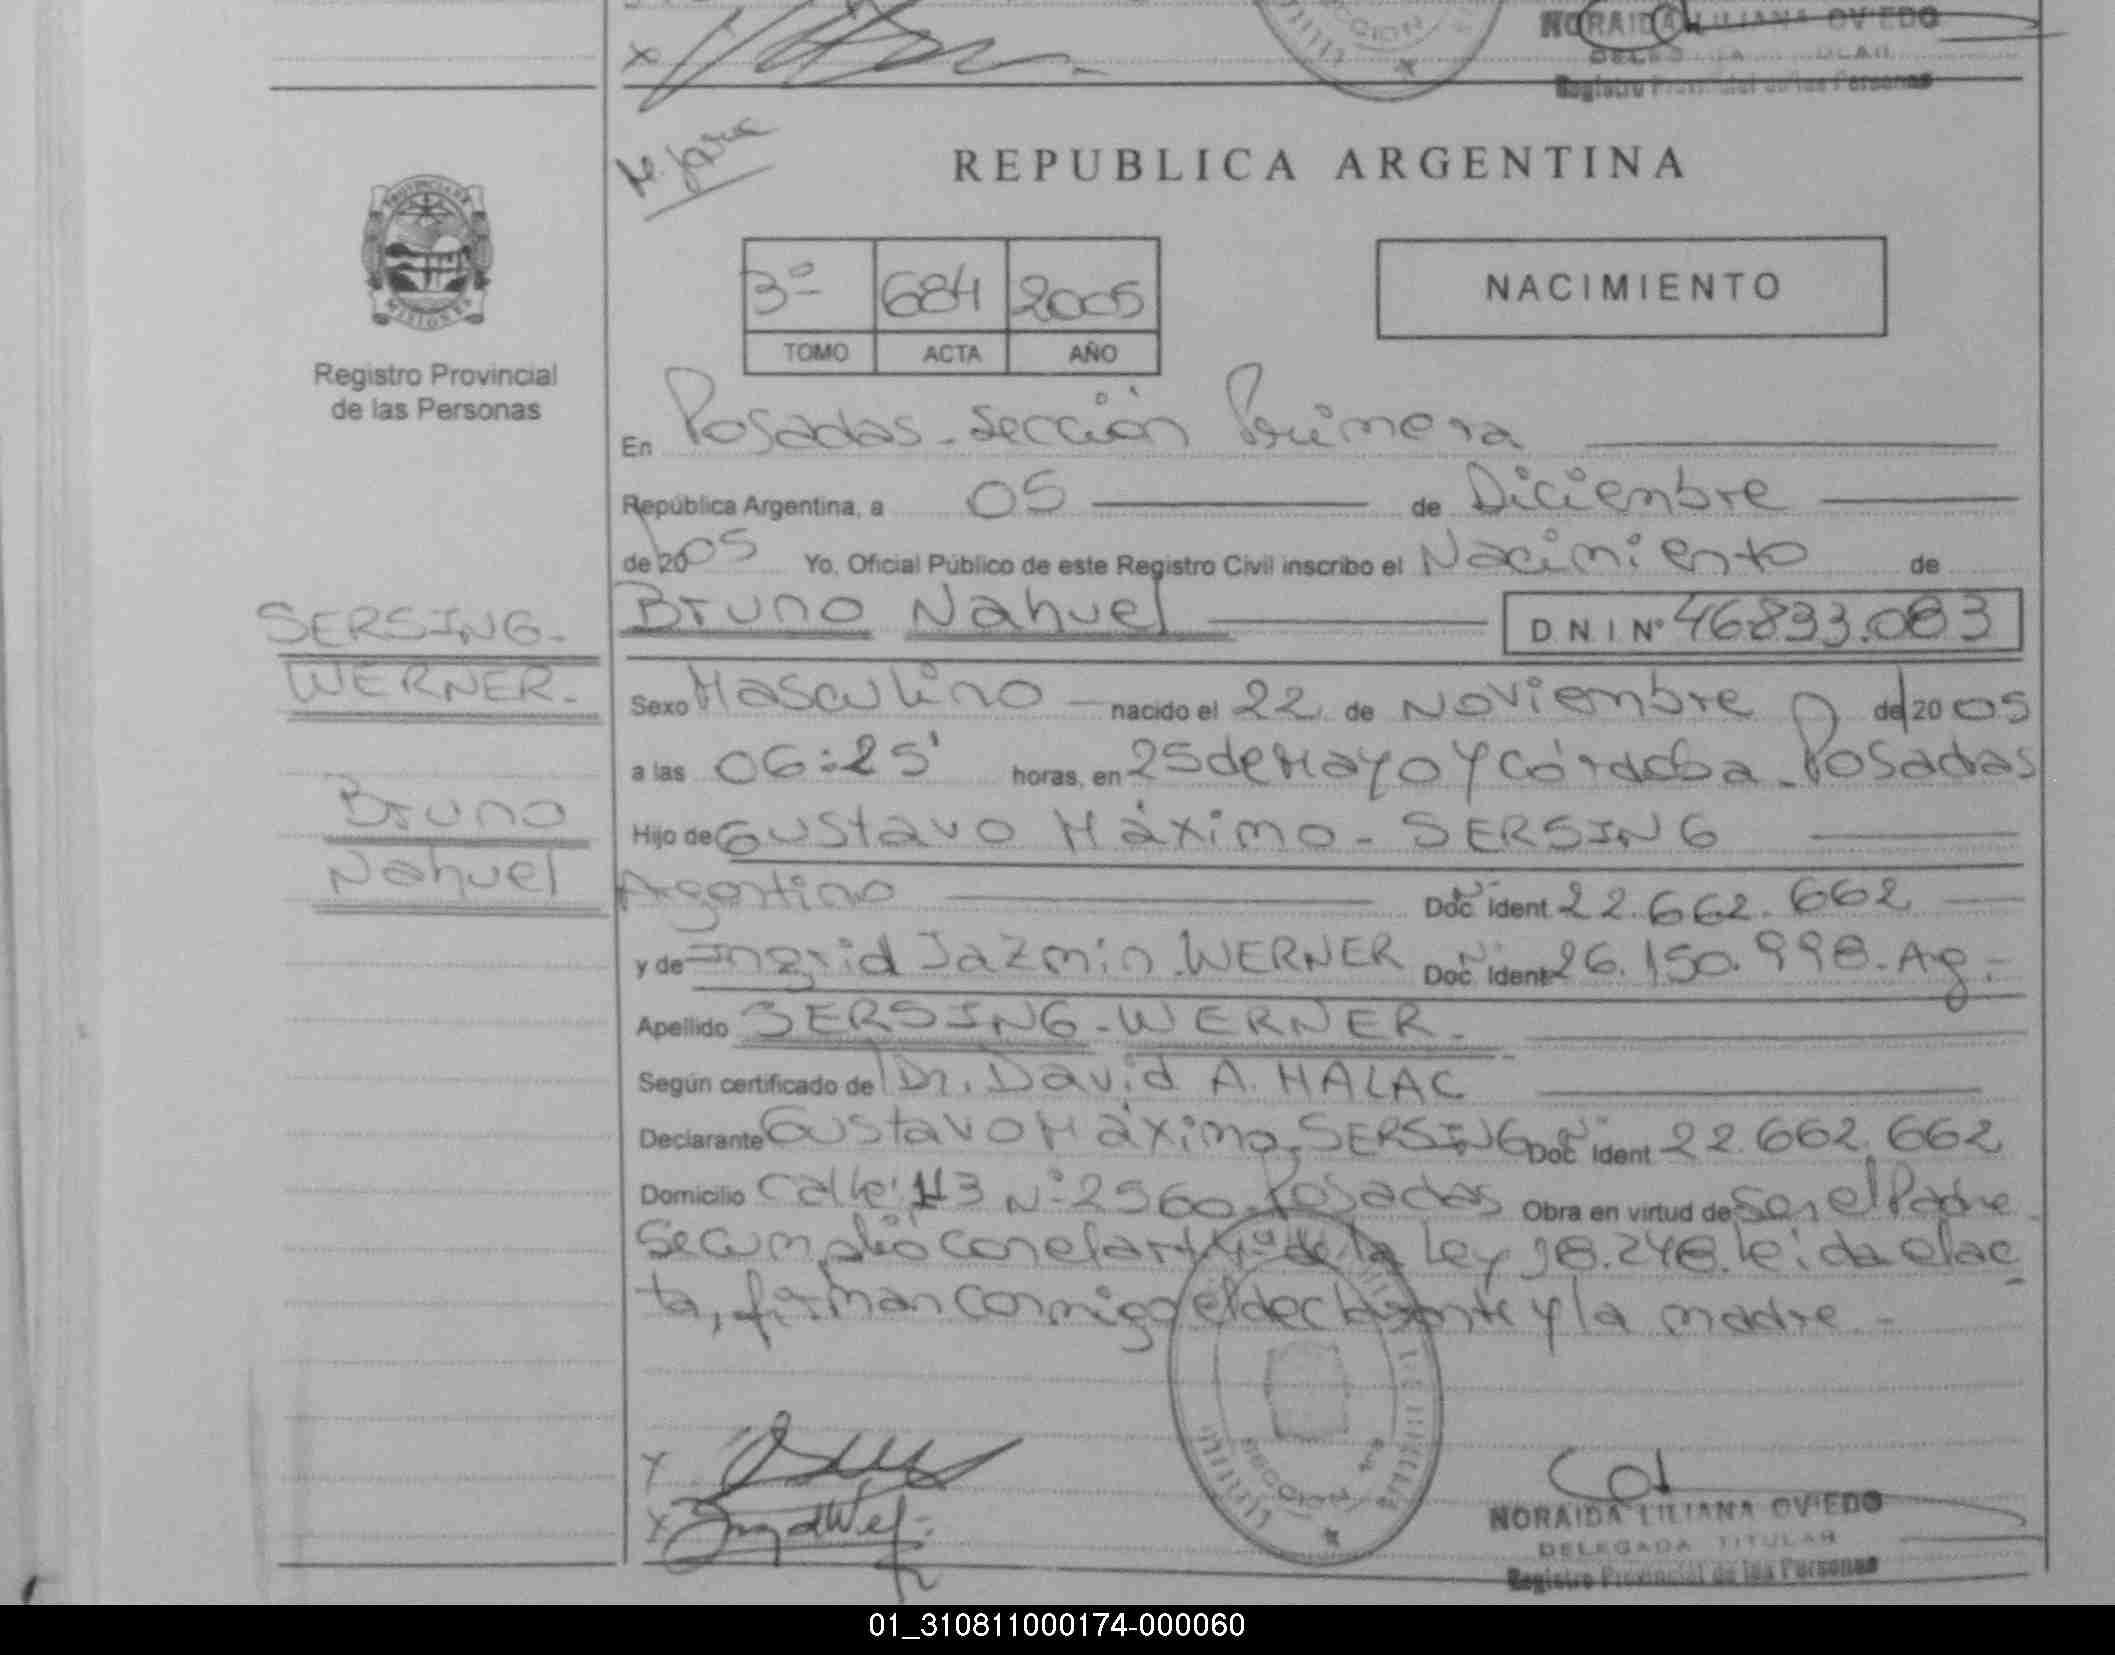 NORAIDA LILIANA OVIEDO
Registro Provincial de las Personas
REPUBLICA ARGENTINA
PROVINCIA DE
MISIONES
Registro Provincial
de las Personas
3º 684 2005
TOMO ACTA AÑO
NACIMIENTO
En Posadas - Sección Primera
República Argentina, a 05 de Diciembre
de 2005 Yo, Oficial Público de este Registro Civil inscribo el Nacimiento de
Bruno Nahuel DNI Nº 46833.083
SERSING -
WERNER.-
Bruno
Nahuel
Sexo Masculino nacido el 22 de Noviembre de 2005
a las 06:25' horas, en 25 de Mayo y Córdoba - Posadas
Hijo de Gustavo Máximo - SERSING
Argentino Doc Ident 22.662.662
y de Ingrid Jazmin WERNER Doc Ident 26.150.998. Ag.-
Apellido SERSING - WERNER.-
Según certificado de Dr. David A. HALAC
Declarante Gustavo Máximo SERSING Doc Ident 22.662.662
Domicilio Calle 113 Nº 2560 Posadas Obra en virtud de ser el Padre
Se cumplió con el art 4º de la Ley 18.248. leída el ac
ta, firman conmigo el declarante y la madre.-
SECCION
NORAIDA LILIANA OVIEDO
DELEGADA TITULAR
Registro Provincial de las Personas
01_310811000174-000060